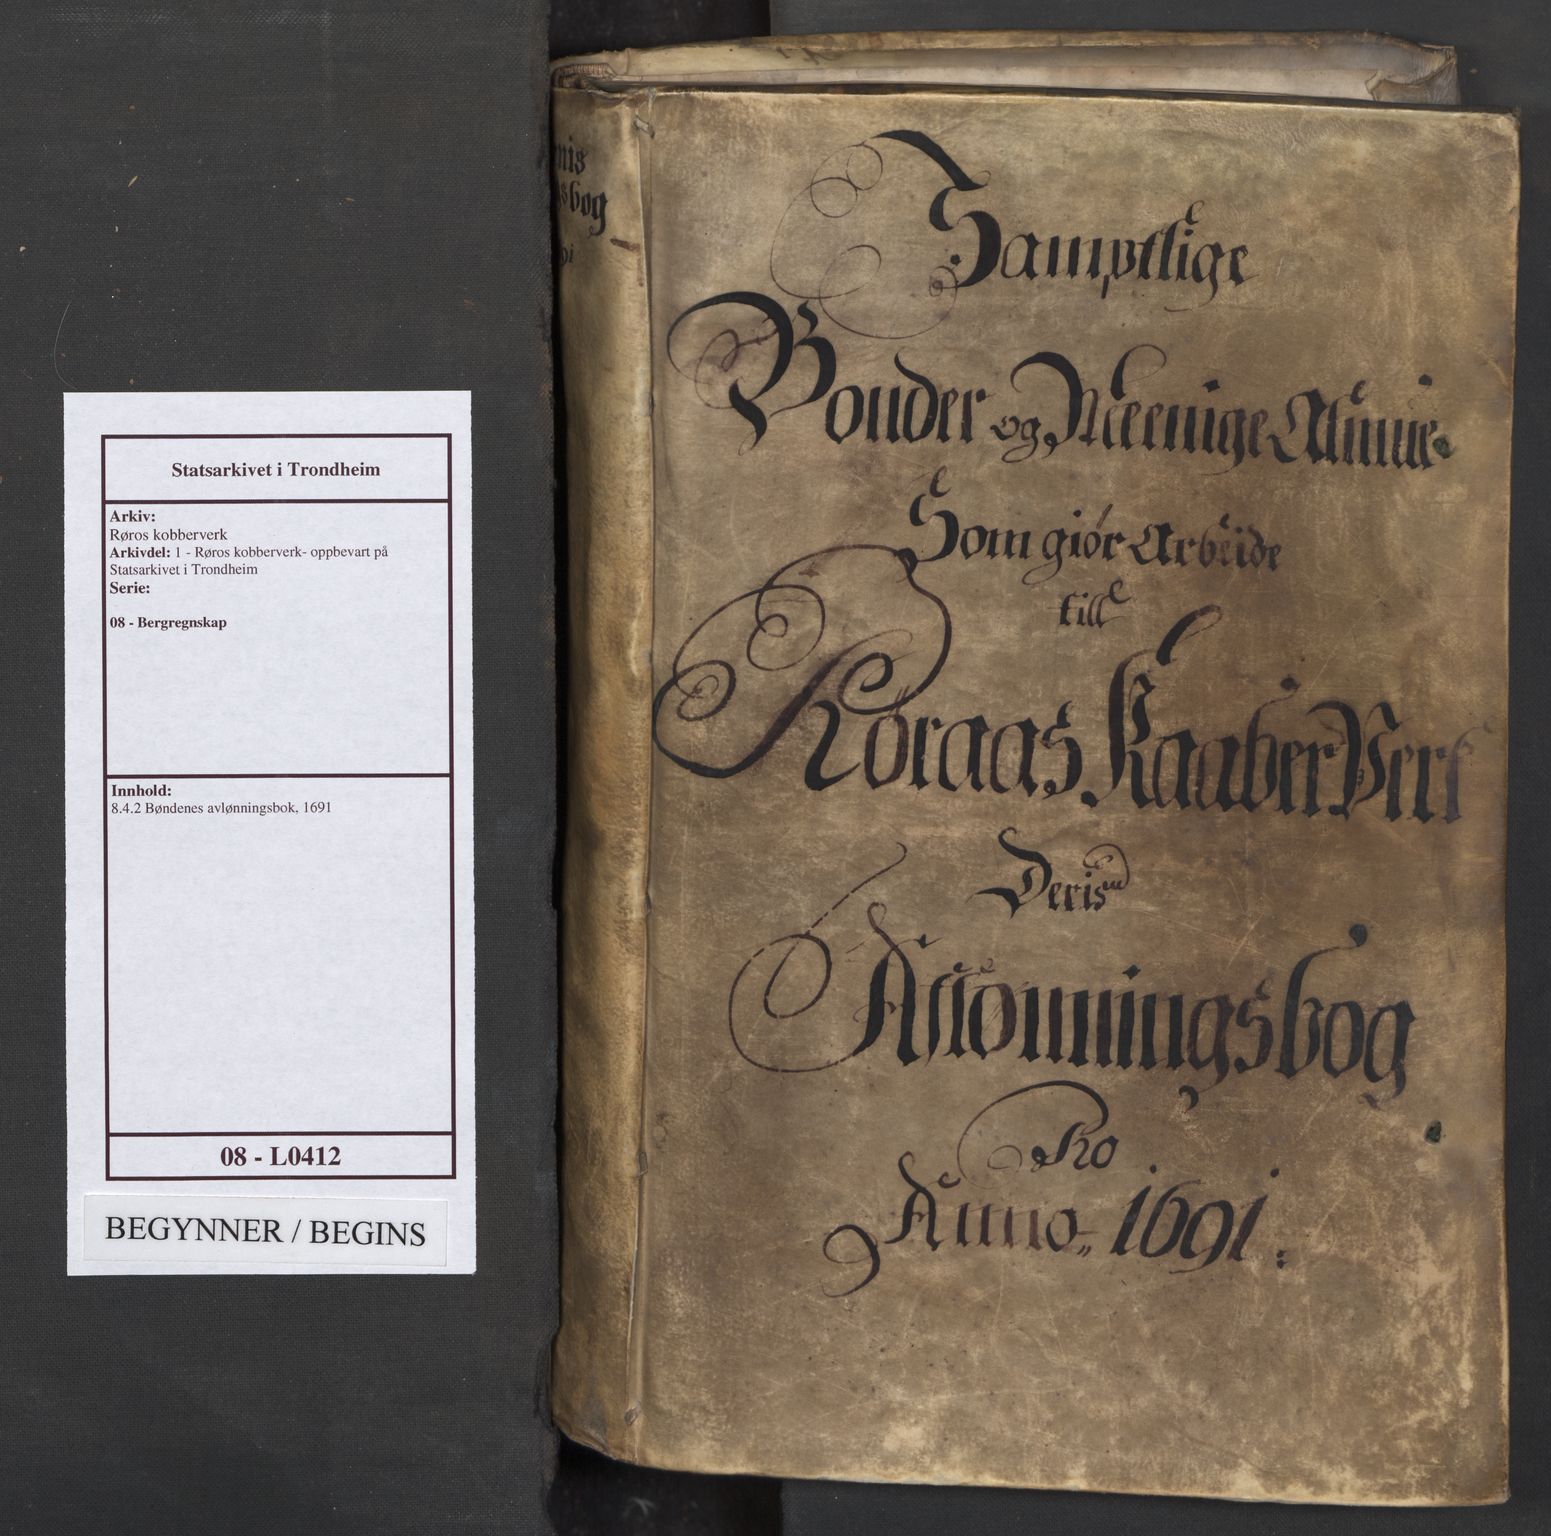 Statsarkivet i Trondheim
Arkiv:
Røros kobberverk
Arkivdel: 1 - Røros kobberverk- oppbevart på
Statsarkivet i Trondheim
Serie:
08 - Bergregnskap
Innhold:
8.4.2 Bøndenes avlønningsbok, 1691
08 - L0412
BEGYNNER / BEGINS
nis
gsbog
91
Samptlige
Bønder og Meenige Almue
Som giør Arbeide
till
Røraas Kaaber Verk
Deris
Aflønningsbog
Pro
Anno 1691.